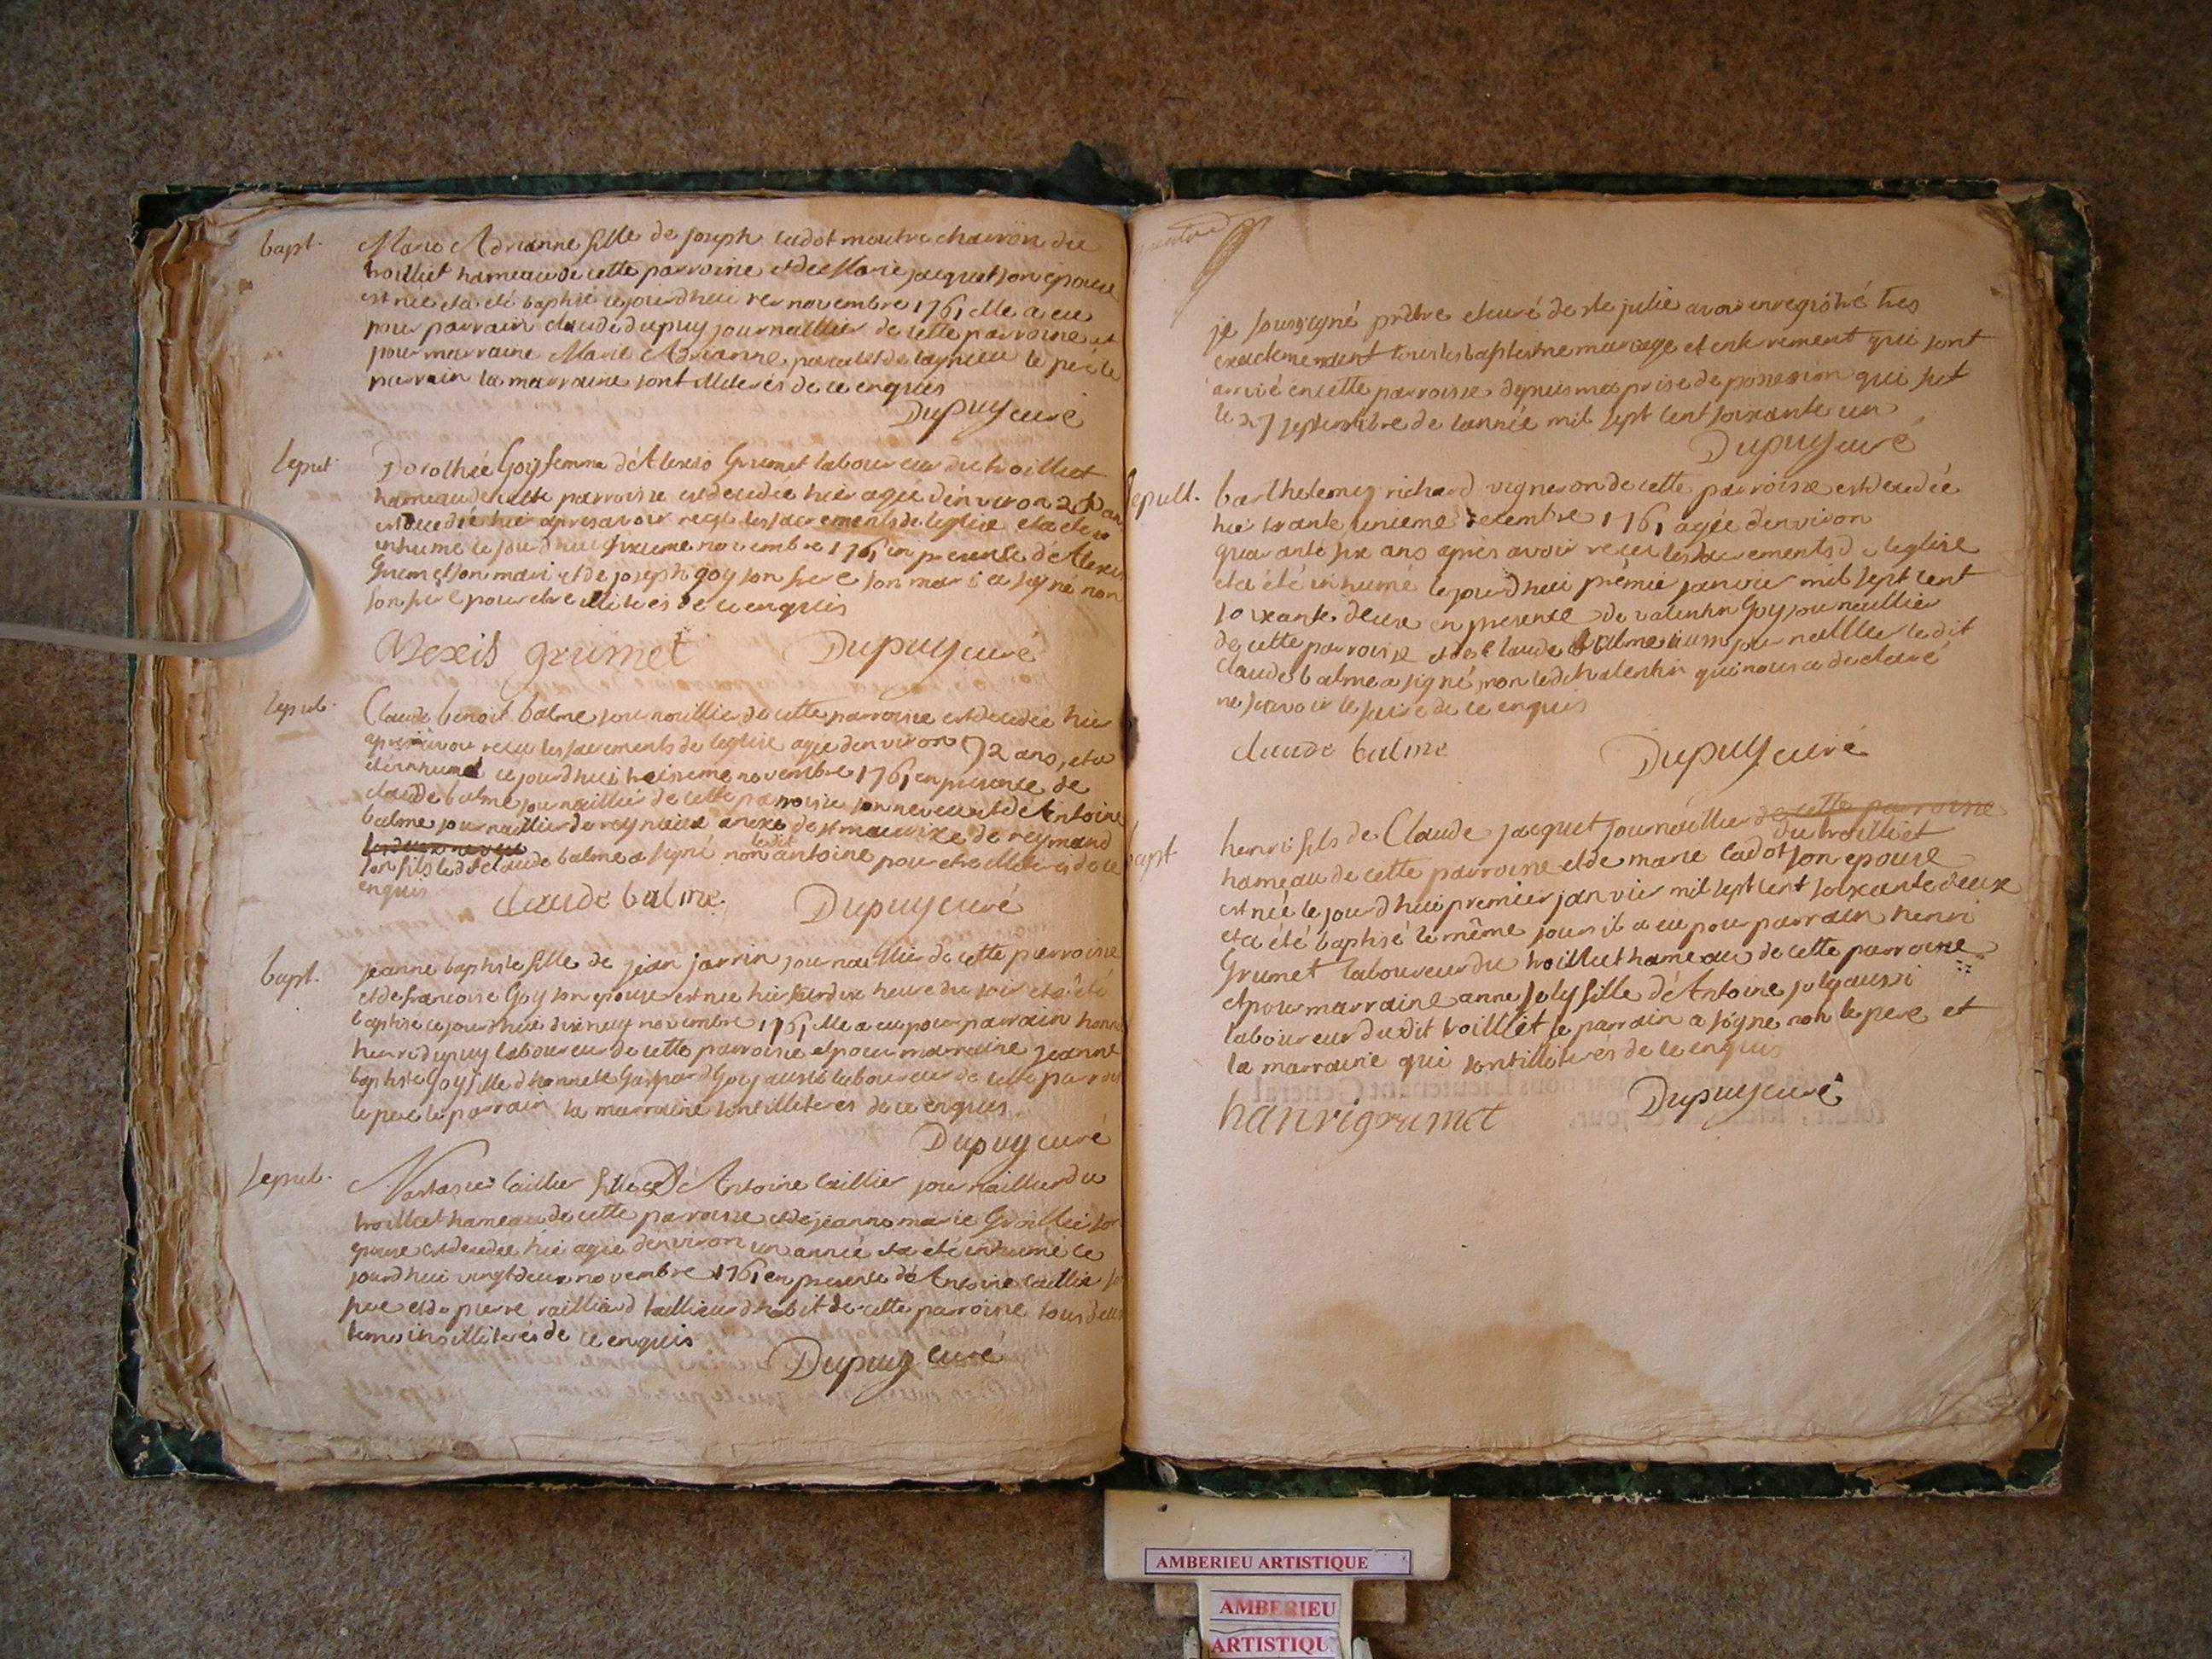 bapt.
Marie Adrianne fille de joseph cadot maitre charron du
troilliet hameau de cette parroisse et de Marie jacquet son epouse
est née et a été baptisé ce jourdhuei novembre 1761 elle a eu
pour parrain claude dupuy journaillier de cette parroisse et
pour marraine Marie Adrianne de lagnieu le père le
parrain la marraine sont illiterés de ce enquis
Dupuy curé
sepult.
Dorothée Goy femme d'Alexis Grumet laboureur du troilliet
hameau de cette parroisse est decedée hier agée d'environ ans
est decedée hier apres avoir reçu les sacrements de leglise et a été
inhumé ce jourdhuei novembre 1761 en presence d'Alexis
Grumet son mari et de joseph goy son frere son mari a signé non
son frere pour etre illiterés de ce enquis
Alexis grumet Dupuy curé
sepult.
Claude benoit balme journaillier de cette parroisse est decedée hier
apres avoir reçu les sacrements de leglise agée denviron 72 ans, et a
été inhumé ce jourdhuei treisieme novembre 1761 en presence de
claude balme journaillier de cette parroisse son neveu et d'Antoine
balme journaillier de reynieux anexe de st maurixe de reymand
son fils ledit claude balme a signé non ledit antoine pour etre illiterés de ce
enquis
claude balme Dupuy curé
bapt.
jeanne baptiste fille de jean jarrin journaillier de cette parroisse
et de francoise Goy son epouse est née hier heure du soir et a été
baptisé ce jourdhuei dix neuf novembre 1761 elle a eu pour parrain
henri dupuy laboureur de cette parroisse et pour marraine jeanne
baptiste Goy fille d'honnete Gaspard Goy aussi laboureur de cette
le père le parrain la marraine sont illiterés de ce enquis
Dupuy curé
sepult.
Nastasie caillier fille d'Antoine caillier journaillier du
troilliet hameau de cette parroisse et de jeanne marie son
epouse est decedée hier agée denviron un année et a été inhumé ce
jourdhuei vingt deux novembre 1761 en presence d'Antoine caillier
pere et de pierre tailleur d'habit de cette parroisse tous deux
temoins illiterés de ce enquis
Dupuy curé
je soussigné prêtre et curé de ste julie avoir enregistré tres
exactemement tous les baptesme mariage et enterrement qui sont
arrivé en cette parroisse depuis ma prise de possession qui fut
le 27 septembre de lannée mil sept cent soixante un
Dupuy curé
sepult.
barthelemy richard vigneron de cette parroisse est decedée
hier trante unieme decembre 1761 agée denviron
quarante six ans après avoir reçu les sacrements de leglise
et a été inhumé ce jourdhuei premier janvier mil sept cent
soixante deux en presence de valentin Goy journaillier
de cette parroisse et de Claude balme aussi journaillier ledit
claude balme a signé non ledit valentin qui nous a declaré
ne sçavoir le faire de ce enquis
claude balme Dupuy curé
bapt.
henri fils de Claude jacquet journaillier de cette parroisse
du troilliet
hameau de cette parroisse et de marie cadot son epouse
est née ce jourdhuei premier janvier mil sept cent soixante deux
et a été baptisé le même jour il a eu pour parrain henri
Grumet laboureur du troilliet hameau de cette parroisse
et pour marraine anne joly fille d'Antoine joly aussi
laboureur dudit troilliet le parrain a signe non le pere et
la marraine qui sont illiterés de ce enquis
hanri grumet Dupuy curé
AMBERIEU ARTISTIQUE
AMBERIEU
ARTISTIQU